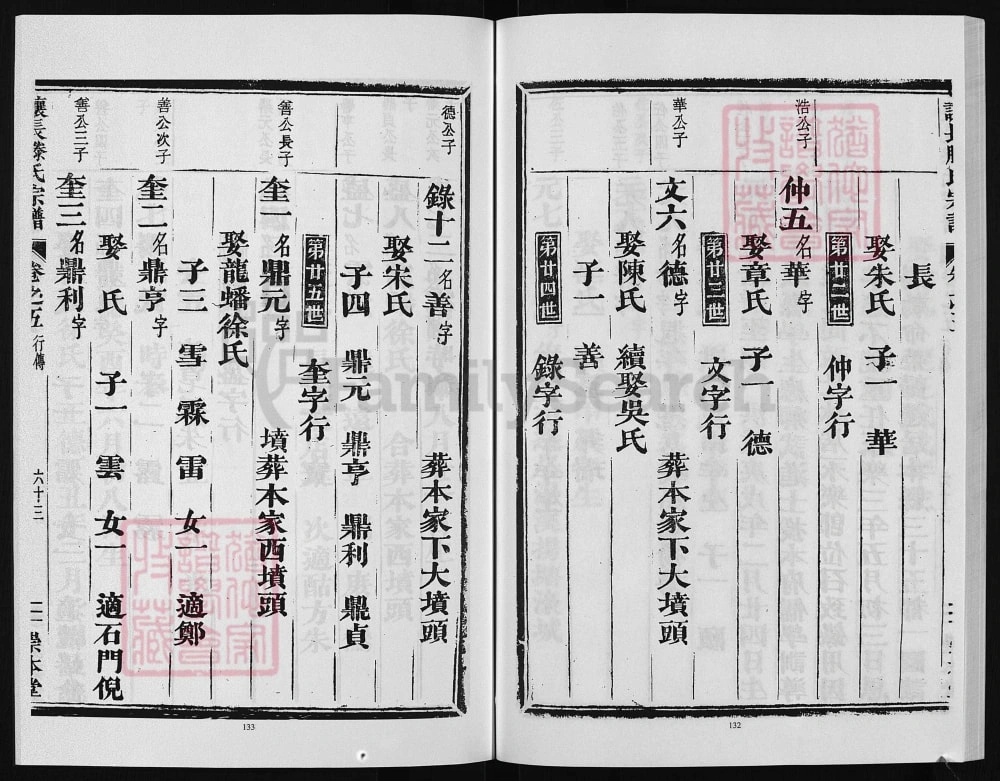 長
娶朱氏 子一 華
第廿二世 仲字行
浩公子 仲五 名華 字
娶章氏 子一 德
第廿三世 文字行
華公子 文六 名德 字 葬本家下大墳頭
娶陳氏 續娶吳氏
子一 善
第廿四世 錄字行
132
德公子 錄十二 名善 字 葬本家下大墳頭
娶朱氏
子四 鼎元 鼎亨 鼎利 鼎貞
第廿五世 奎字行
善公長子 奎一 名鼎元 字 墳葬本家西墳頭
娶龍蟠徐氏
子三 雪 霖 雷 女一 適鄭
善公次子 奎二 名鼎亨 字
娶 氏 子一 雲 女一 適石門倪
善公三子 奎三 名鼎利 字
長滕氏宗譜 卷之五 行傳 六十三 崇本堂
133
FamilySearch